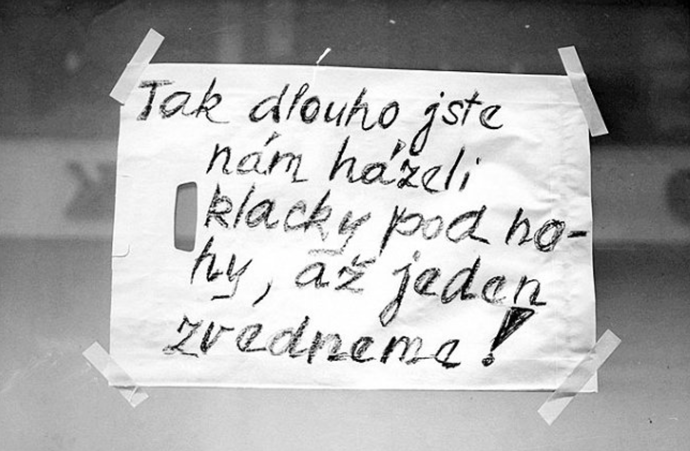 Tak dlouho jste
nám házeli
klacky pod no-
hy, až jeden
zvedneme!